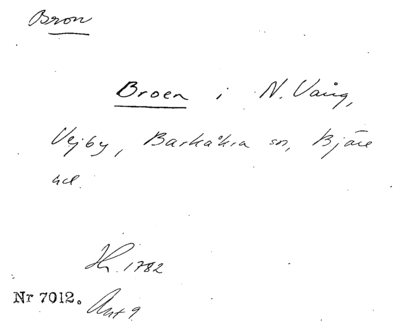 Bron
Broen i N. Vång,
Vejby, Barkåkra sn, Bjäre
hd.
1782
Nr 7012. Akt 9